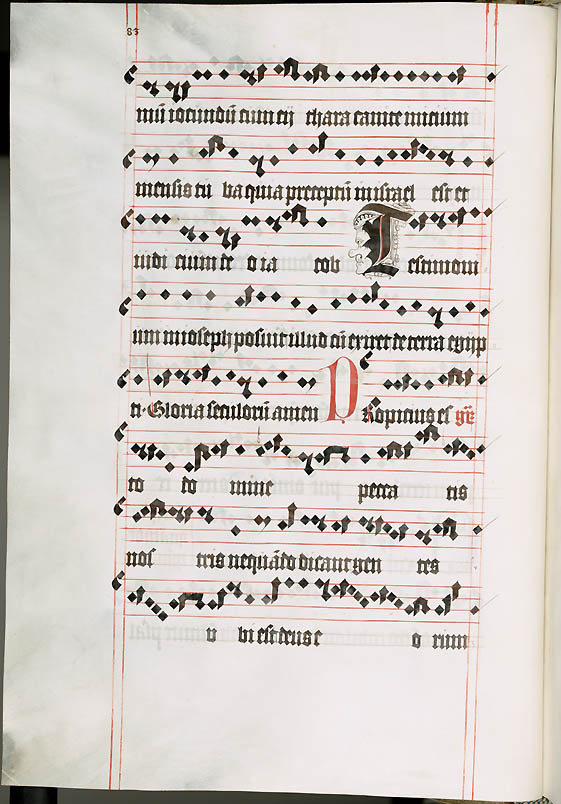 83
mū iocundū cum cy thara canite inicium
mensis tu ba quia preceptū in israel est et
iudi cium de o ia cob Testimoni
um in ioseph posuit illud cū exiret de terra egyp
ti. Gloria seculorū amen Propicius es gr̄e
to do mine pecca tis
nos tris nequādo dicant gen tes
v bi est deus e o rum